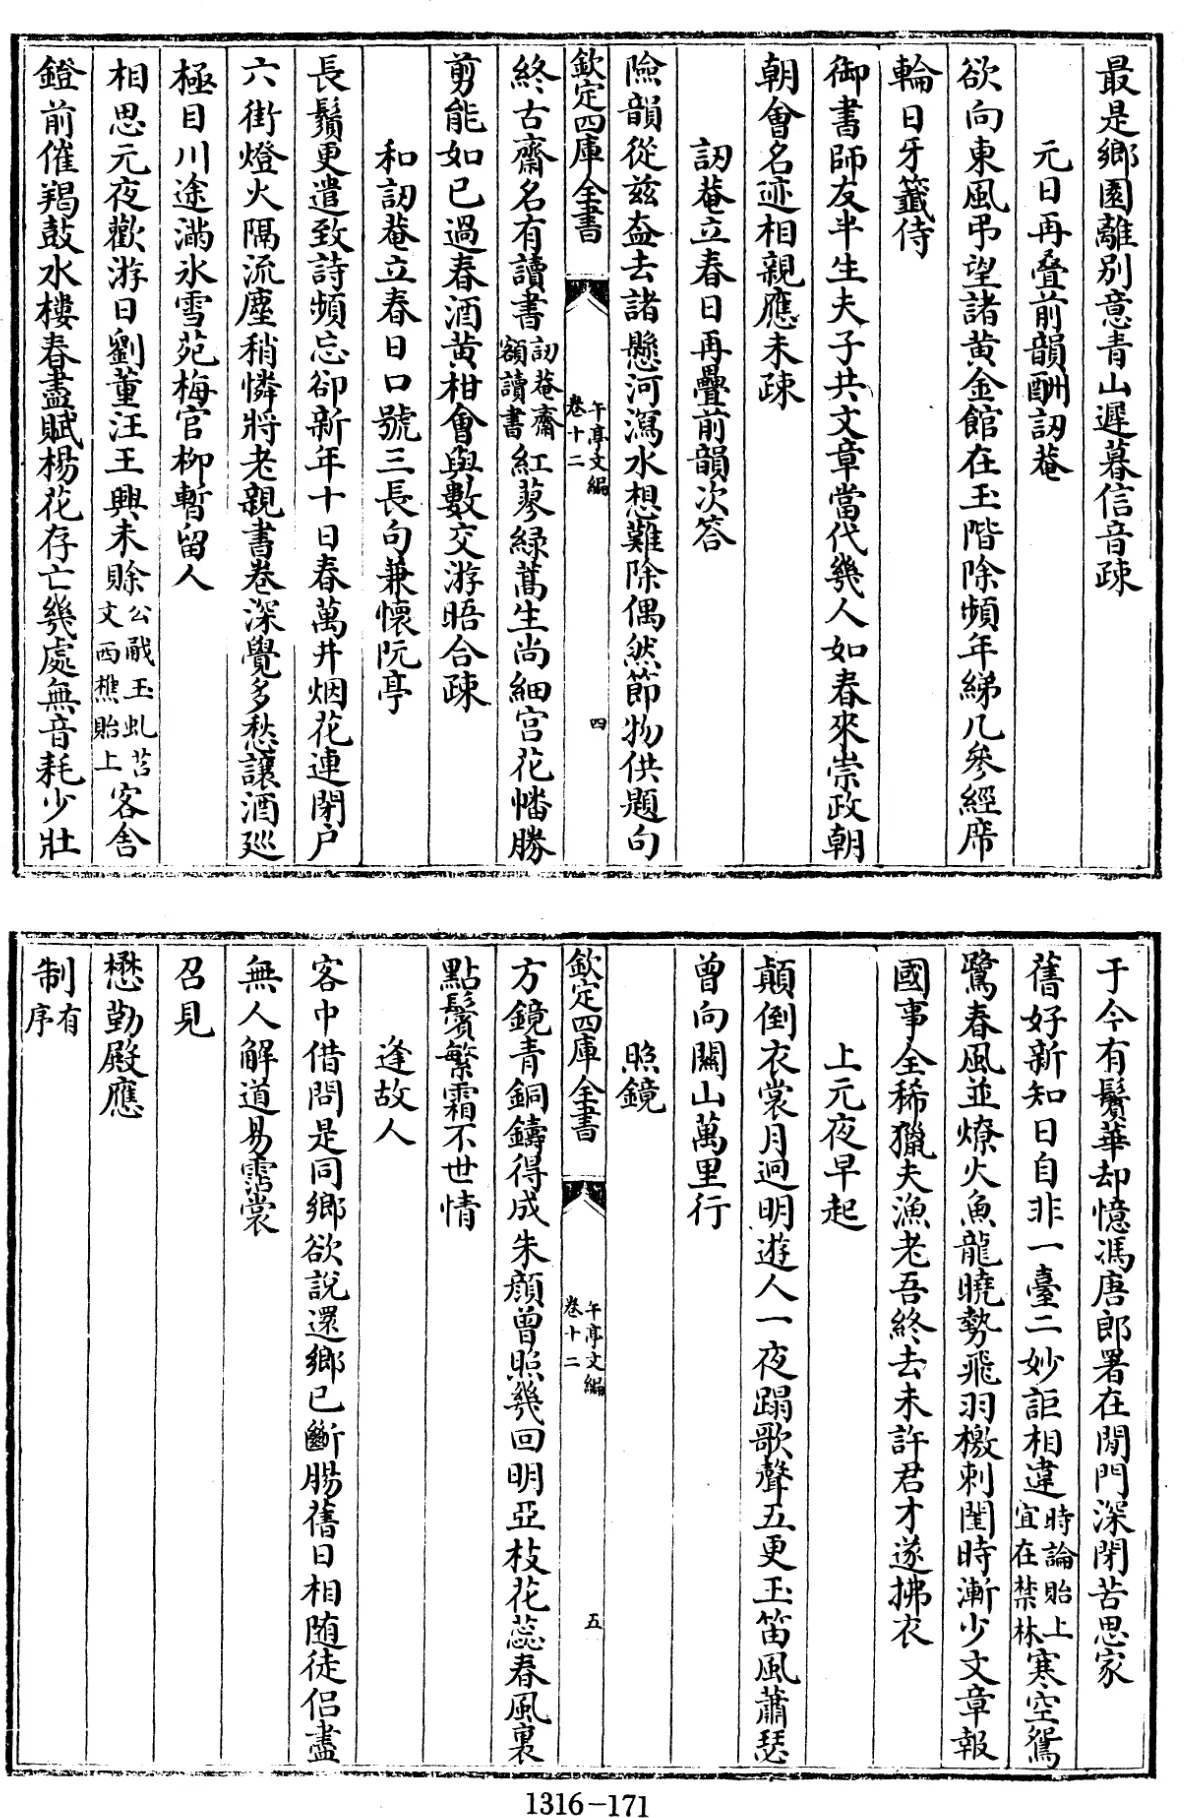 最是鄉園離别意青山遲暮信音疎
元日再叠前韻酬訒菴
欲向東風弔望諸黄金館在玉階除頻年綈几參經席
輪日牙籤侍
御書師友半生夫子共文章當代幾人如春來崇政朝
朝會名迹相親應未疎
訒菴立春日再疊前韻次答
險韻從兹益去諸懸河瀉水想難除偶然節物供題句
欽定四庫全書
午亭文編
卷十二
四
終古齋名有讀書訒菴齋額讀書紅蓼緑蒿生尚細宫花幡勝
剪能如已過春酒黄柑會與數交游晤合疎
和訒菴立春日口號三長句兼懷阮亭
長鬚更遣致詩頻忘卻新年十日春萬井烟花連閉户
六街燈火隔流塵稍憐將老親書卷深覺多愁讓酒巡
極目川途滿氷雪苑梅官柳暫留人
相思元夜歡游日劉董汪王興未賒公㦷玉虬苕文西樵貽上客舎
鐙前催羯鼓水樓春盡賦楊花存亡幾處無音耗少壯
于今有鬢華却憶馮唐郎署在閒門深閉苦思家
舊好新知日自非一臺二妙詎相違時論貽上宜在禁林寒空鴛
鷺春風並燎火魚龍曉勢飛羽檄刺閨時漸少文章報
國事全稀獵夫漁老吾終去未許君才遂拂衣
上元夜早起
顛倒衣裳月迥明遊人一夜蹋歌聲五更玉笛風蕭瑟
曾向關山萬里行
照鏡
欽定四庫全書
午亭文編
卷十二
五
方鏡青銅鑄得成朱顔曾照幾回明亞枝花蕊春風裏
點鬢繁霜不世情
逢故人
客中借問是同鄉欲説還鄉已斷腸舊日相随徒侣盡
無人解道易霑裳
召見
懋勤殿應
制有序
1316-171